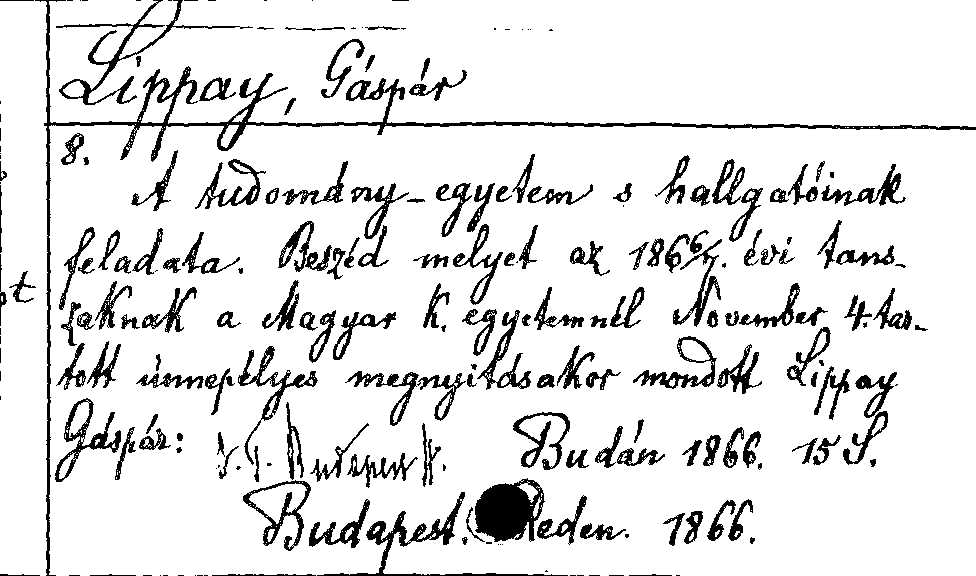 Lippay, Gáspár
8.
A tudomány-egyetem s hallgatóinak
feladata. Beszéd melyet az 1866/7. évi tans-
zaknak a Magyar k. egyetemnél November 4. tar-
tott ünnepélyes megnyitásakor mondott Lippay
Gáspár: Budán 1866. 15 S.
Budapest. Reden. 1866.